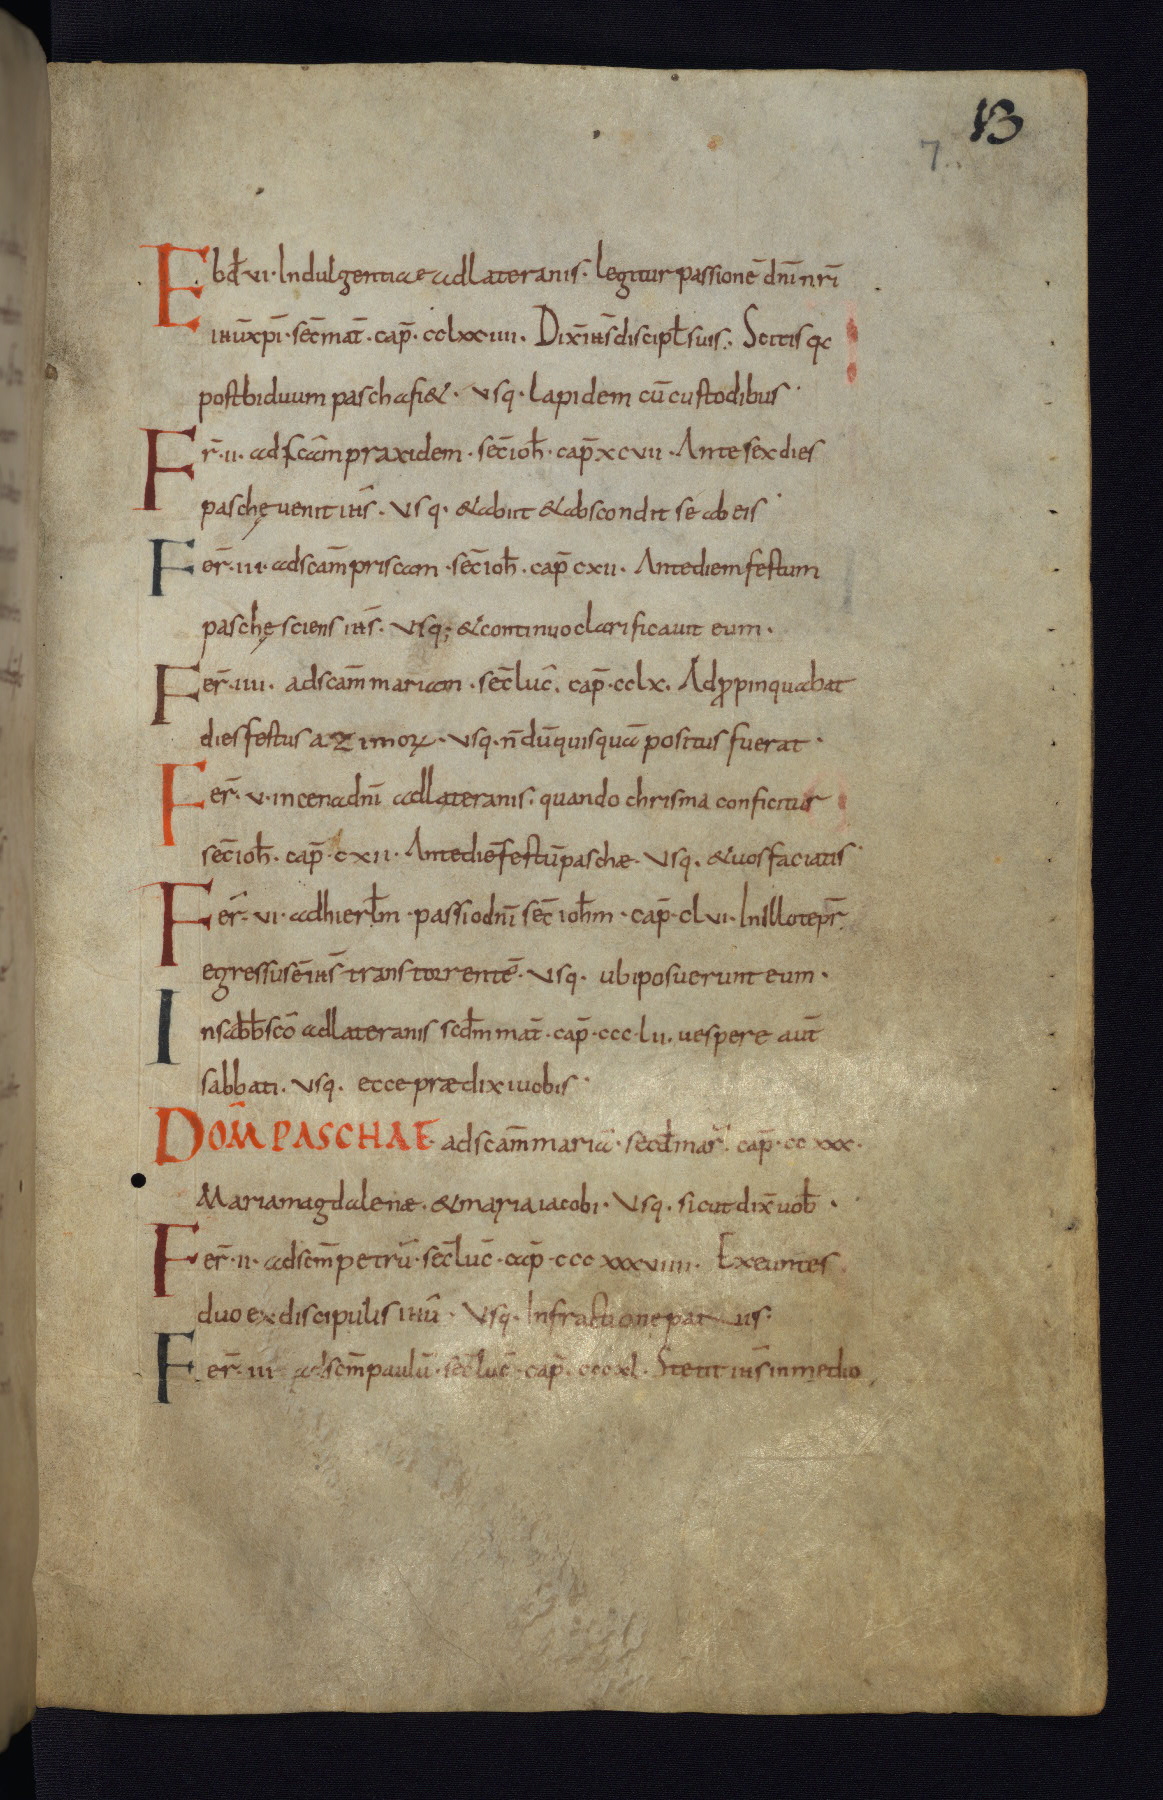 13
7..
Ebd̄ vi· Indulgentiae ad lateranis· legitur passionē dn̄i nr̄i
ihū xp̄i· sec̄ mat̄· cap̄· cclxxiiii. Dix̄ ih̄s discipl̄ suis· Scitis qa
post biduum pascha fi&· usq· lapidem cū custodibus·
Fr̄· ii· ad scām praxidem· sec̄ ioh̄· cap̄ xcvii· Ante sex dies
paschę uenit ih̄s· usq· &abiit &abscondit se ab eis·
Fer̄· iii· ad scām priscam· sec̄ ioh̄· cap̄ cxii· Ante diem festum
paschę sciens ih̄s· usq; &continuo clarificauit eum·
Fer̄· iiii· ad scām mariam· sec̄ luc̄· cap̄· cclx· Adp̱pinquabat
dies festus azimoꝝ· usq· n̄dū quisquā positus fuerat·
Fer̄· v· in cena dn̄i ad lateranis· quando chrisma conficitur
sec̄ ioh̄· cap̄· cxii· Ante diē festū paschæ· usq· &uos faciatis·
Fer̄· vi· ad hierl̄m· passio dn̄i sec̄ ioh̄m· cap̄· clvi· In illo tepr̄
egressus ē ih̄s trans torrentē· usq· ubi posuerunt eum·
In sabb̄ scō ad lateranis scd̄m mat̄· cap̄· ccc·lii· uespere aut̄
sabbati· usq· ecce prædixi uobis·
DOM̄ PASCHAE· ad scām mariā· secd̄ mar̄· cap̄· ccxxx·
Maria magdalenæ· &maria iacobi· Usq· sicut dix̄ uob̄·
Fer̄· ii· ad scm̄ petrū· sec̄ luc̄· cap̄· cccxxxviiii· Exeuntes
duo ex discipulis ihū· Usq· In fractione panis·
Fer̄· iii· ad scm̄ paulū· sec̄ luc̄· cap̄· cccxl· Stetit ih̄s in medio